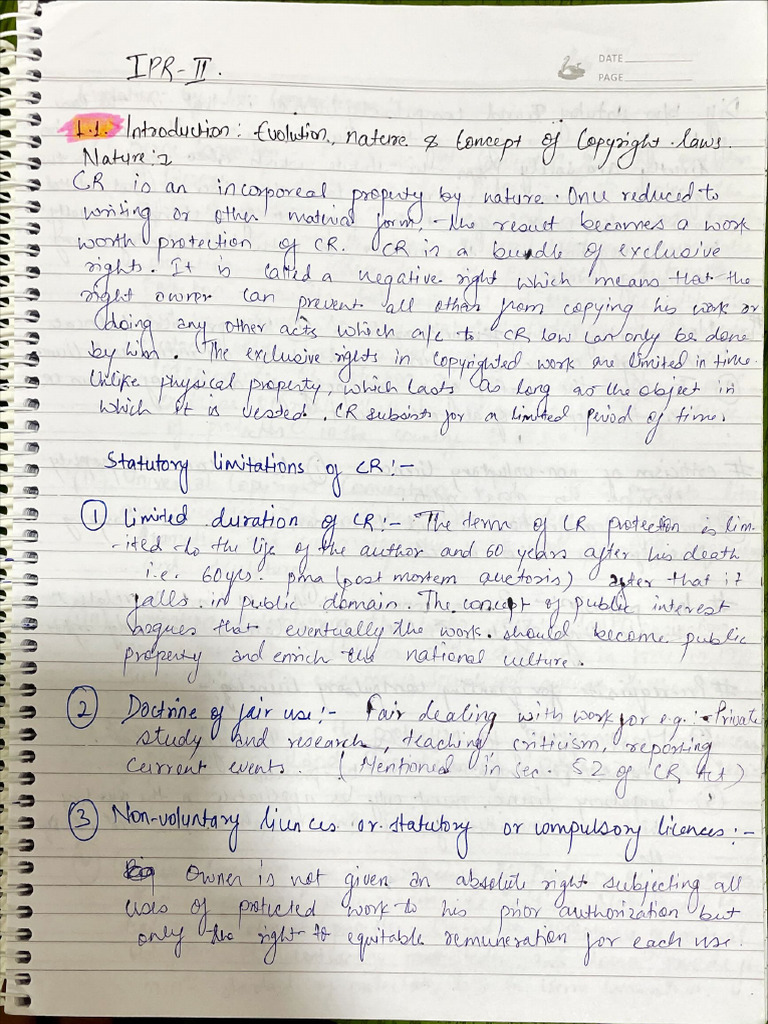 IPR-II.
DATE
PAGE
1.1. Introduction: Evolution, nature & Concept of Copyright laws.
Nature:-
CR is an incorporeal property by nature. Once reduced to
writing or other material form, the result becomes a work
worth protection of CR. CR is a bundle of exclusive
rights. It is called a negative right which means that the
right owner can prevent all others from copying his work or
doing any other acts which a/c to CR law can only be done
by him. The exclusive rights in copyrighted work are limited in time.
Unlike physical property, which lasts as long as the object in
which it is vested. CR subsists for a limited period of time.
Statutory limitations of CR:-
① Limited duration of CR:- The term of CR protection is lim-
-ited to the life of the author and 60 years after his death
i.e. 60yrs. pma (post mortem auctoris) after that it
falls in public domain. The concept of public interest
argues that eventually the work should become public
property and enrich the national culture.
② Doctrine of fair use:- Fair dealing with work for e.g.:- Private
study and research, teaching, criticism, reporting
current events. (Mentioned in sec. 52 of CR Act)
③ Non-voluntary licences or statutory or compulsory licences:-
Owner is not given an absolute right subjecting all
uses of protected work to his prior authorization but
only the right to equitable remuneration for each use.